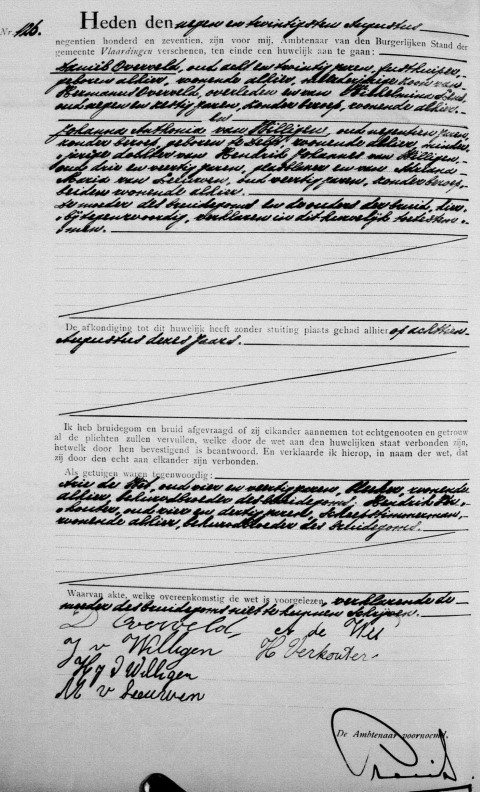 Nr. 126.
Heden den negen en twintigsten Augustus
negentien honderd en zeventien, zijn voor mij, Ambtenaar van den Burgerlijken Stand der
gemeente Vlaardingen verschenen, ten einde een huwelijk aan te gaan:
Overveld, oud acht en twintig jaren,
geboren alhier, wonende alhier, meerderjarige zoon van
Hermanus Overveld, overleden en van Wilhelmina
oud negen en zestig jaren, zonder beroep, wonende alhier.
en
Johanna Anthonia van Willigen, oud negentien jaren,
zonder beroep, geboren te Delft, wonende alhier, minder-
jarige dochter van Hendrik Johannes van Willigen,
oud drie en veertig jaren, en van
Maria van Leeuwen, oud veertig jaren, zonder beroep,
beiden wonende alhier.
De moeder des bruidegoms en de ouders der bruid, hier-
bij tegenwoordig, verklaren in dit huwelijk toe te stem-
men.
De afkondiging tot dit huwelijk heeft zonder stuiting plaats gehad alhier op achttien
Augustus dezes jaars.
Ik heb bruidegom en bruid afgevraagd of zij elkander aannemen tot echtgenooten en getrouw
al de plichten zullen vervullen, welke door de wet aan den huwelijken staat verbonden zijn,
hetwelk door hen bevestigend is beantwoord. En verklaarde ik hierop, in naam der wet, dat
zij door den echt aan elkander zijn verbonden.
Als getuigen waren tegenwoordig:
Arie de Wes, oud vier en veertig jaren, wonende
alhier, behuwdbroeder des bruidegoms; Hendrik Ver-
kouter, oud vier en dertig jaren, Scheepstimmerman,
wonende alhier, behuwdbroeder des bruidegoms.
Waarvan akte, welke overeenkomstig de wet is voorgelezen, verklarende de
moeder des bruidegoms niet te kunnen schrijven.
D Overveld
J v Willigen
H J Willigen
M v Leeuwen
de Wes
H Verkouter
De Ambtenaar voornoemd,